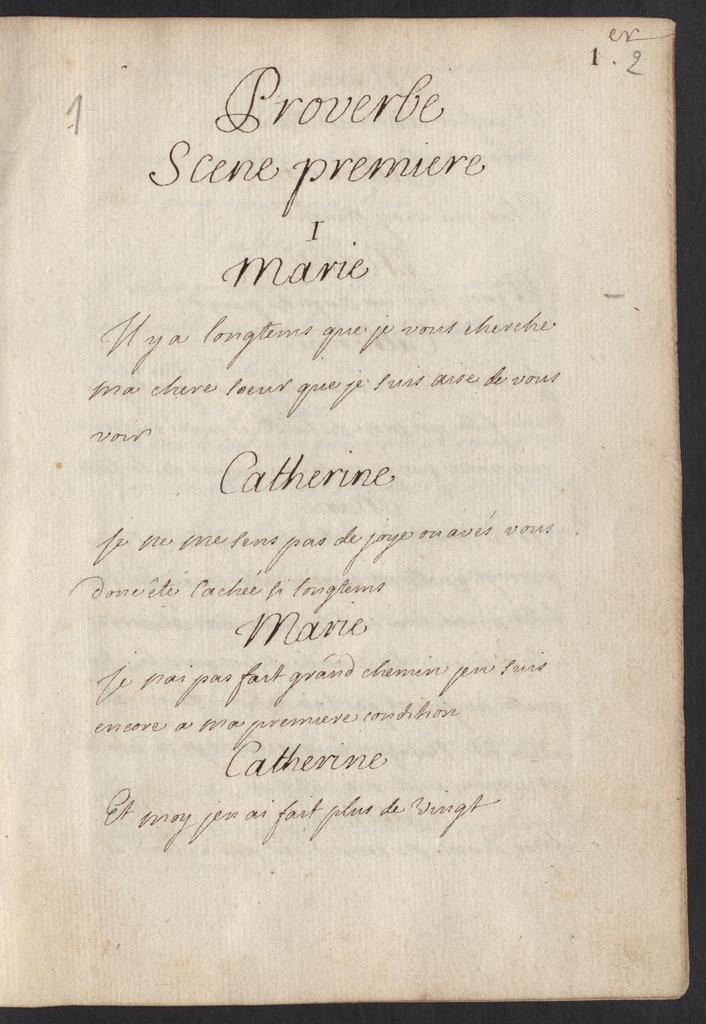 er
1. 2
1
Proverbe
Scene premiere
I
Marie
Il y a longtems que je vous cherche
ma chere soeur que je suis aise de vous
voir
Catherine
je ne me sens pas de joye ou avés vous
donc été cachée si longtems
Marie
je n'ai pas fait grand chemin j'en suis
encore a ma premiere condition
Catherine
Et moy j'en ai fait plus de vingt